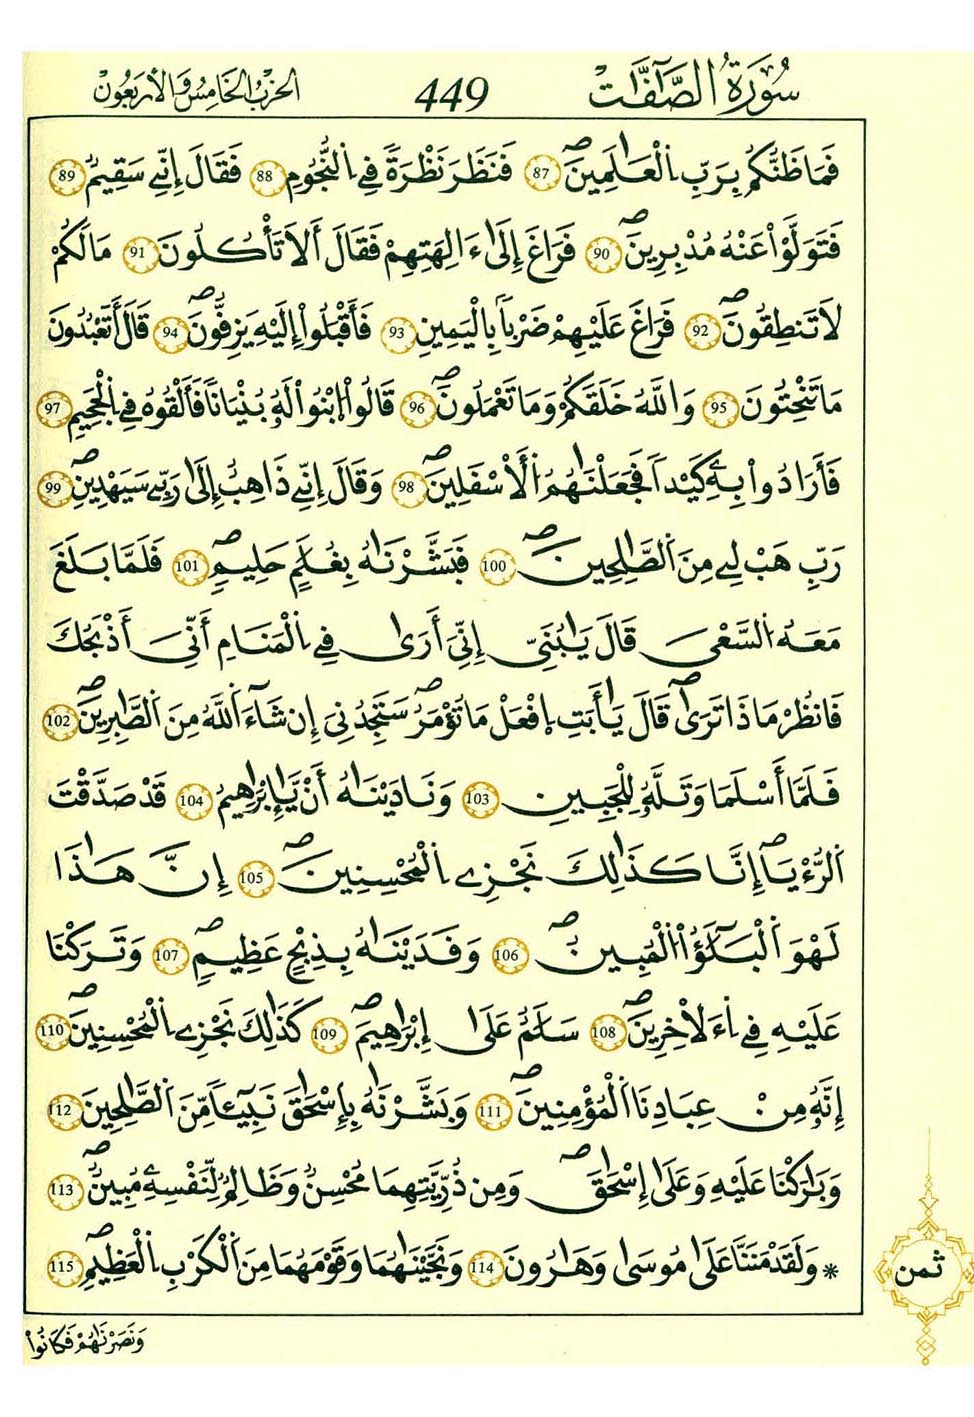 سُورَةُ الصَّآفَّاتِ 449 الحِزْبُ الخَامِسُ وَالأَرْبَعُونَ
فَمَا ظَنُّكُم بِرَبِّ اِ۬لْعَٰلَمِينَۖ 87 فَنَظَرَ نَظْرَةٗ فِے اِ۬لنُّجُومِ 88 فَقَالَ إِنِّے سَقِيمٞ 89
فَتَوَلَّوْاْ عَنْهُ مُدْبِرِينَۖ 90 فَرَاغَ إِلَىٰٓ ءَالِهَتِهِمْ فَقَالَ أَلَا تَأْكُلُونَ 91 مَا لَكُمْ
لَا تَنطِقُونَۖ 92 فَرَاغَ عَلَيْهِمْ ضَرْباَۢ بِالْيَمِينِ 93 فَأَقْبَلُوٓاْ إِلَيْهِ يَزِفُّونَۖ 94 قَالَ أَتَعْبُدُونَ
مَا تَنْحِتُونَ 95 وَاللَّهُ خَلَقَكُمْ وَمَا تَعْمَلُونَۖ 96 قَالُواْ اُ۪بْنُواْ لَهُۥ بُنْيَٰناٗ فَأَلْقُوهُ فِے اِ۬لْجَحِيمِ 97
فَأَرَادُواْ بِهِۦ كَيْداٗ فَجَعَلْنَٰهُمُ اُ۬لْأَسْفَلِينَۖ 98 وَقَالَ إِنِّے ذَاهِبٌ إِلَىٰ رَبِّے سَيَهْدِينِۖ 99
رَبِّ هَبْ لِے مِنَ اَ۬لصَّٰلِحِينَۖ 100 فَبَشَّرْنَٰهُ بِغُلَٰمٍ حَلِيمٖۖ 101 فَلَمَّا بَلَغَ
مَعَهُ اُ۬لسَّعْيَ قَالَ يَٰبُنَيِّ إِنِّيَ أَرَىٰ فِے اِ۬لْمَنَامِ أَنِّيَ أَذْبَحُكَ
فَانظُرْ مَاذَا تَرَىٰۖ قَالَ يَٰٓأَبَتِ اِ۪فْعَلْ مَا تُؤْمَرُۖ سَتَجِدُنِيَ إِن شَآءَ اَ۬للَّهُ مِنَ اَ۬لصَّٰبِرِينَۖ 102
فَلَمَّآ أَسْلَمَا وَتَلَّهُۥ لِلْجَبِينِ 103 وَنَٰدَيْنَٰهُ أَنْ يَّٰٓإِبْرَٰهِيمُ 104 قَدْ صَدَّقْتَ
اَ۬لرُّءْيَآۖ إِنَّا كَذَٰلِكَ نَجْزِے اِ۬لْمُحْسِنِينَۖ 105 إِنَّ هَٰذَا
لَهْوَ اَ۬لْبَلَٰٓؤُاْ اُ۬لْمُبِينُۖ 106 وَفَدَيْنَٰهُ بِذِبْحٍ عَظِيمٖۖ 107 وَتَرَكْنَا
عَلَيْهِ فِے اِ۬لَأخِرِينَۖ 108 سَلَٰمٌ عَلَىٰٓ إِبْرَٰهِيمَۖ 109 كَذَٰلِكَ نَجْزِے اِ۬لْمُحْسِنِينَۖ 110
إِنَّهُۥ مِنْ عِبَادِنَا اَ۬لْمُؤْمِنِينَۖ 111 وَبَشَّرْنَٰهُ بِإِسْحَٰقَ نَبِيٓـٔاٗ مِّنَ اَ۬لصَّٰلِحِينَۖ 112
وَبَٰرَكْنَا عَلَيْهِ وَعَلَىٰٓ إِسْحَٰقَۖ وَمِن ذُرِّيَّتِهِمَا مُحْسِنٞ وَظَالِمٞ لِّنَفْسِهِۦ مُبِينٞۖ 113
* وَلَقَدْ مَنَنَّا عَلَىٰ مُوسَىٰ وَهَٰرُونَ 114 وَنَجَّيْنَٰهُمَا وَقَوْمَهُمَا مِنَ اَ۬لْكَرْبِ اِ۬لْعَظِيمِۖ 115
ثمن
وَنَصَرْنَٰهُمْ فَكَانُواْ